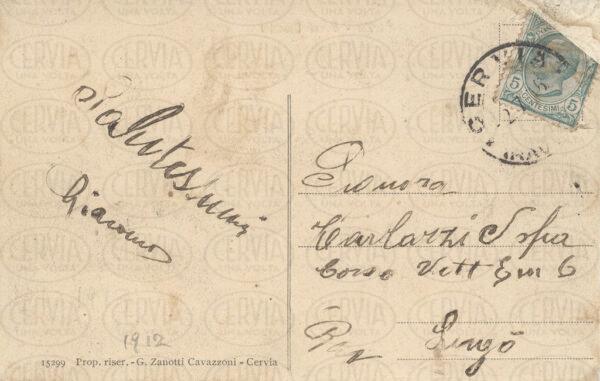 Salutissimi
Giacomo
1912
15299 Prop. riser. - G. Zanotti Cavazzoni - Cervia
CERVIA
5 CENTESIMI 5
Signora
Carlazzi Sofia
Corso Vitt Em 6
Lugo
CERVIA
UNA VOLTA